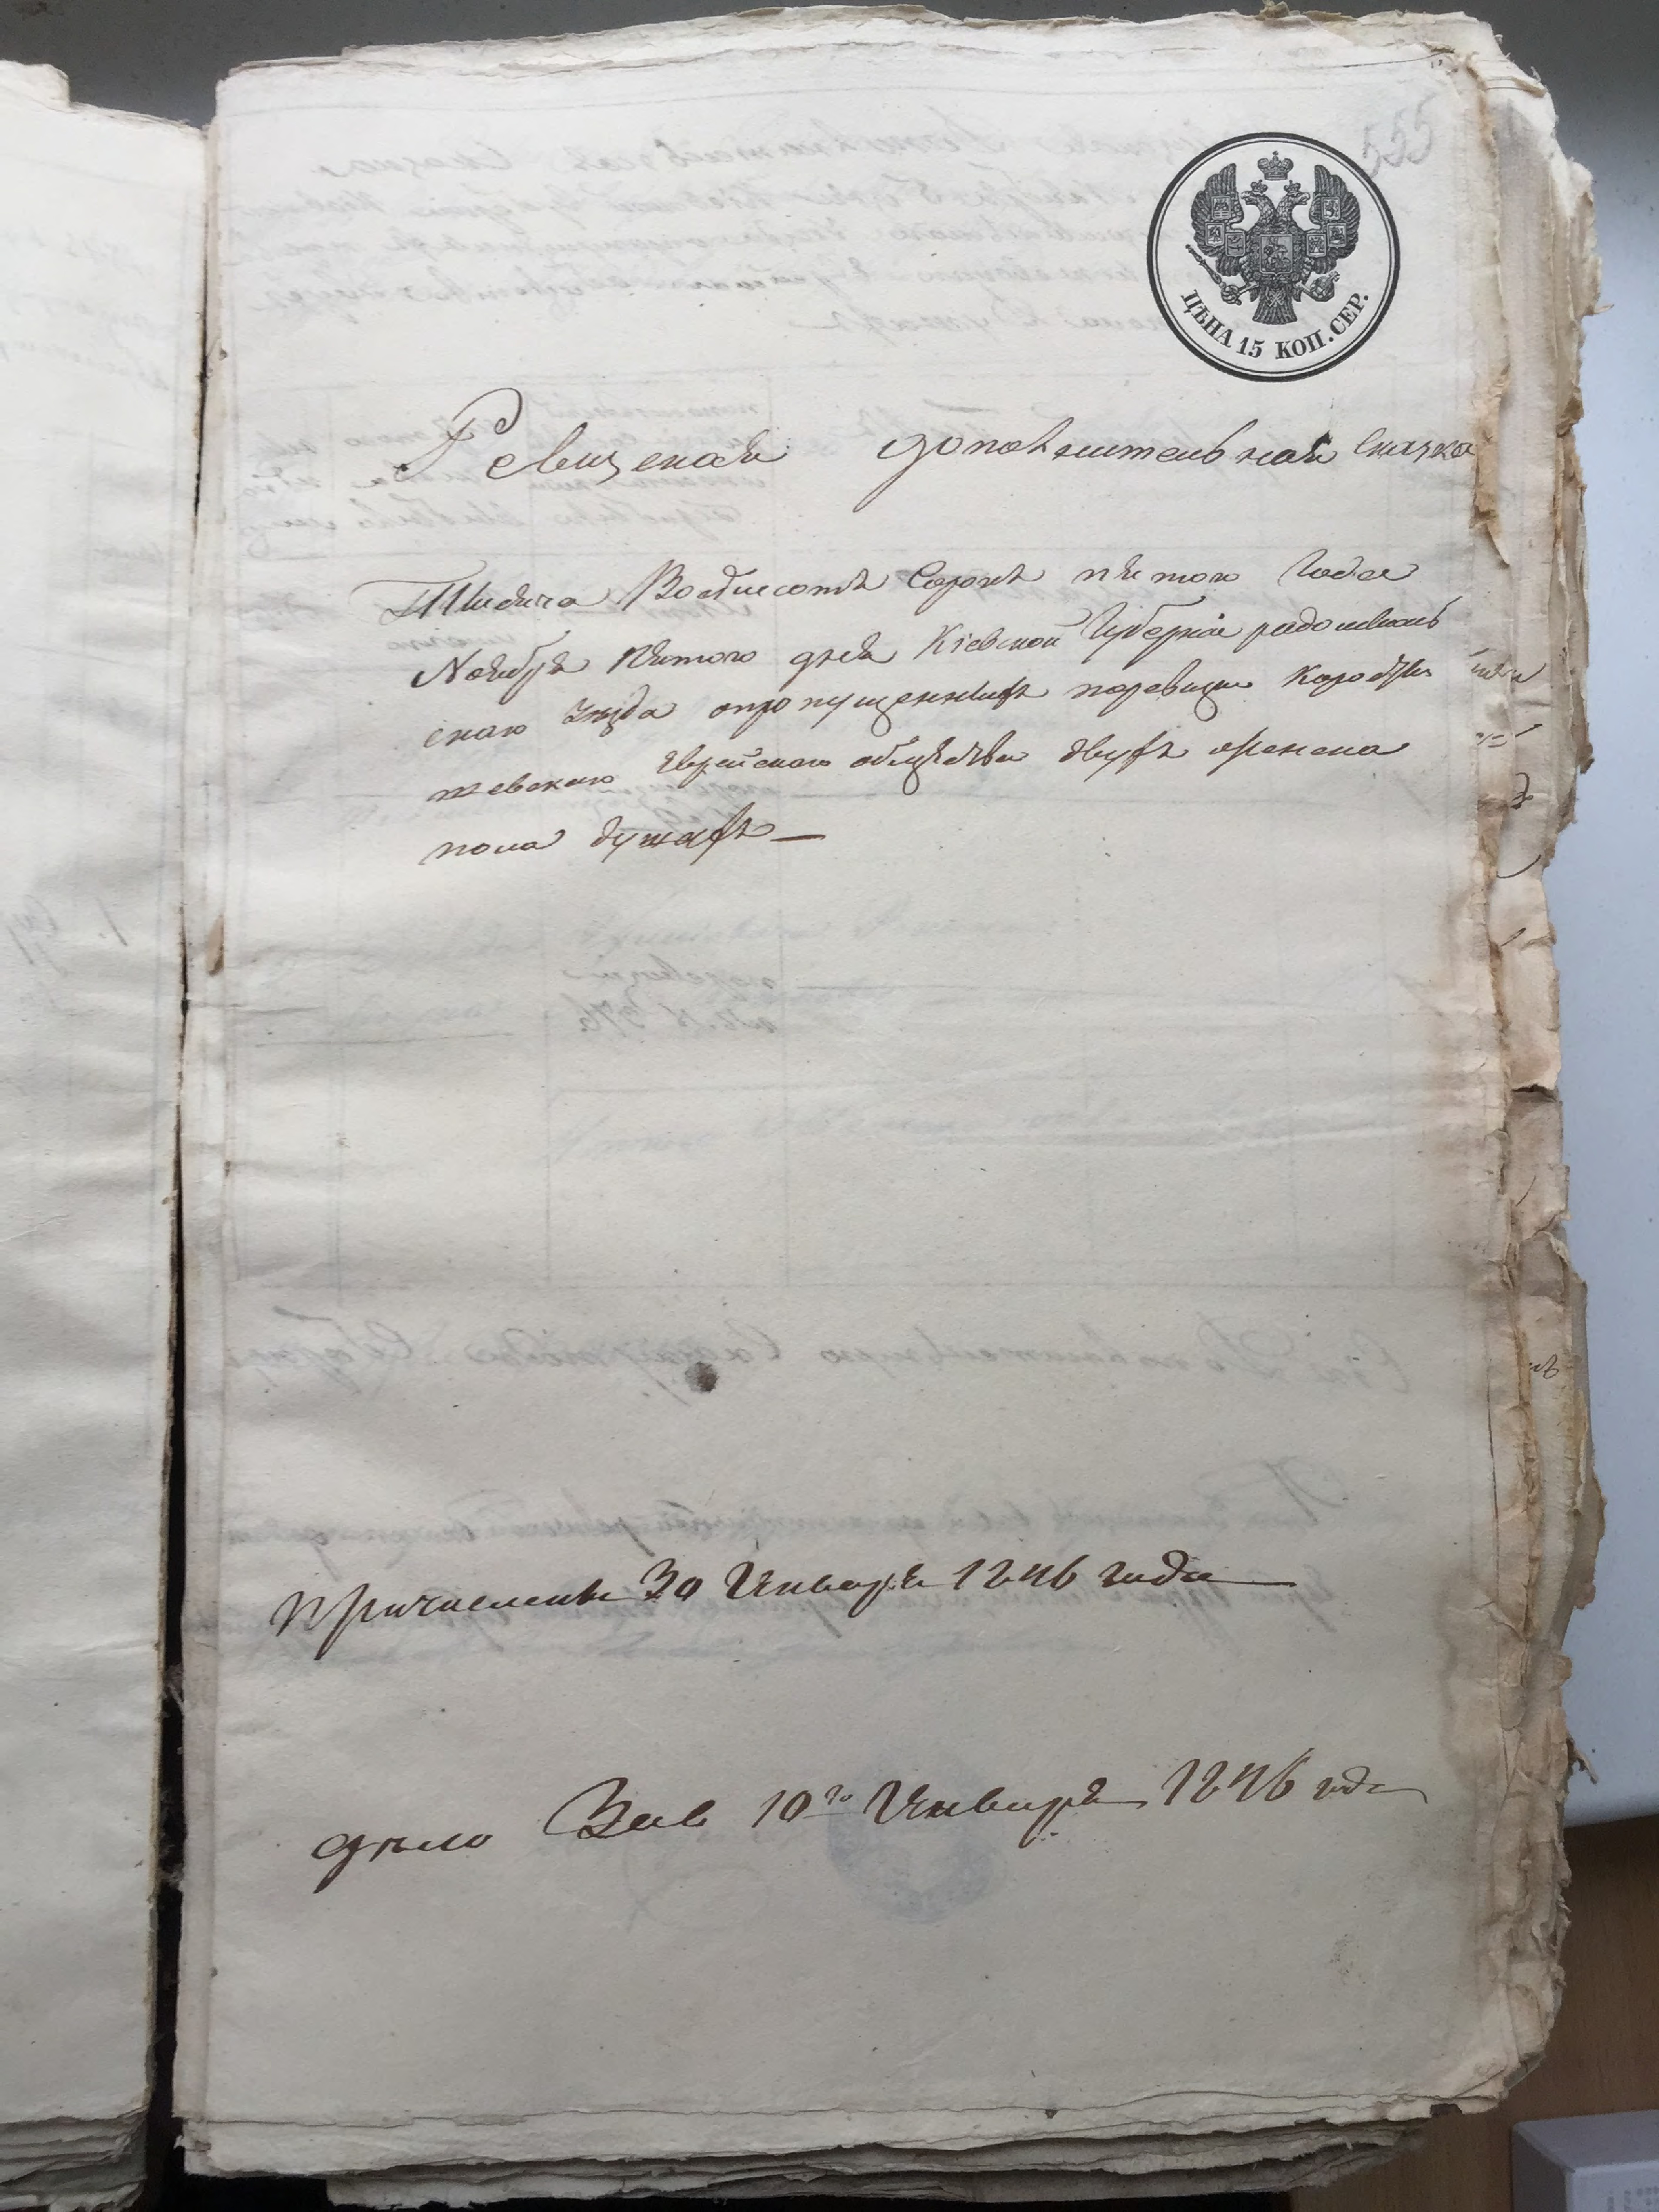 555
ЦѢНА 15 КОП. СЕР.
Ревизская дополнительная Сказка
Тысяча Восемсотъ Сорокъ пятого Года
Ноября пятого дня Кіевской Губерніи радомысль
скаго уѣзда опропущенныхъ поревизіи Коросты
шевскаго Еврейскаго общества двухъ женска
пола душахъ —
Причислены 30 Января 1846 года
дѣло Зав 10го Января 1846 года